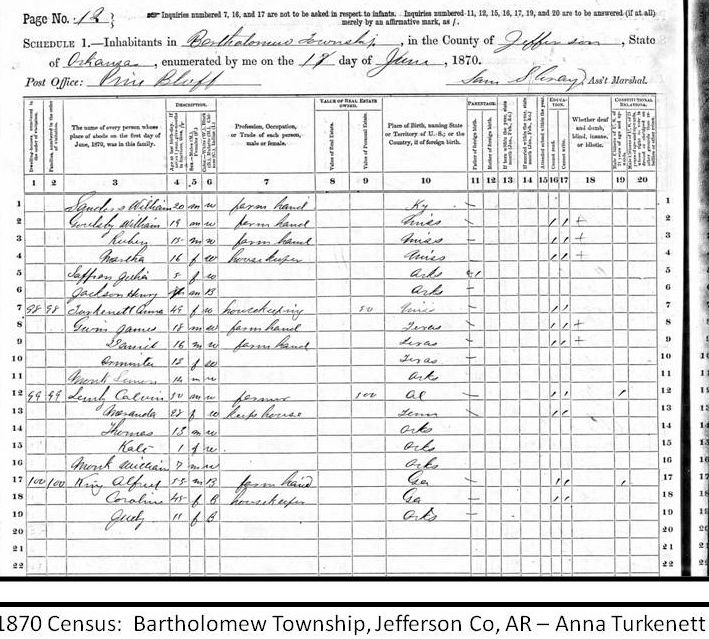 Page No. 12
Inquiries numbered 7, 16, and 17 are not to be asked in respect to infants. Inquiries numbered 11, 12, 15, 16, 17, 19, and 20 are to be answered (if at all)
merely by an affirmative mark, as /.
SCHEDULE 1.—Inhabitants in Bartholomew Township, in the County of Jefferson, State
of Arkansas, enumerated by me on the 18 day of June, 1870.
Post Office: Pine Bluff Sam S. Ass't Marshal.
DESCRIPTION. VALUE OF REAL ESTATE OWNED. PARENTAGE. EDUCATION. CONSTITUTIONAL RELATIONS.
The name of every person whose place of abode on the first day of June, 1870, was in this family.
Profession, Occupation, or Trade of each person, male or female.
Value of Real Estate. Value of Personal Estate.
Place of Birth, naming State or Territory of U.S.; or the Country, if of foreign birth.
Father of foreign birth. Mother of foreign birth.
Attended school within the year. Cannot read. Cannot write.
Whether deaf and dumb, blind, insane, or idiotic.
1 2 3 4 5 6 7 8 9 10 11 12 13 14 15 16 17 18 19 20
1 Sanders William 20 m w farm hand Ky 1
2 Goulsby William 19 m w farm hand Miss 2
3 Ruben 15 m w farm hand Miss 3
4 Martha 16 f w housekeeper Miss 4
5 Saffron Julia 5 f w Arks 5
6 Jackson Henry m B Arks 6
7 98 98 Turkenett Anna 49 f w housekeeping 50 7
8 Gwin James 18 m w farm hand Texas 8
9 Daniel 16 m w farm hand Texas 9
10 f w Texas 10
11 Monk m w Arks 11
12 99 99 Calvin 50 m w farmer 100 Al 12
13 Maranda 28 f w keeps house Tenn 13
14 Thomas 13 m w Arks 14
15 Kate 1 f w Arks 15
16 Monk William 7 m w Arks 16
17 100 100 King Alfred 55 m B farm hand Ga 17
18 Caroline 45 f B housekeeper Ga 18
19 Judy 11 f B Arks 19
20 20
21 21
22 22
1870 Census: Bartholomew Township, Jefferson Co, AR – Anna Turkenett